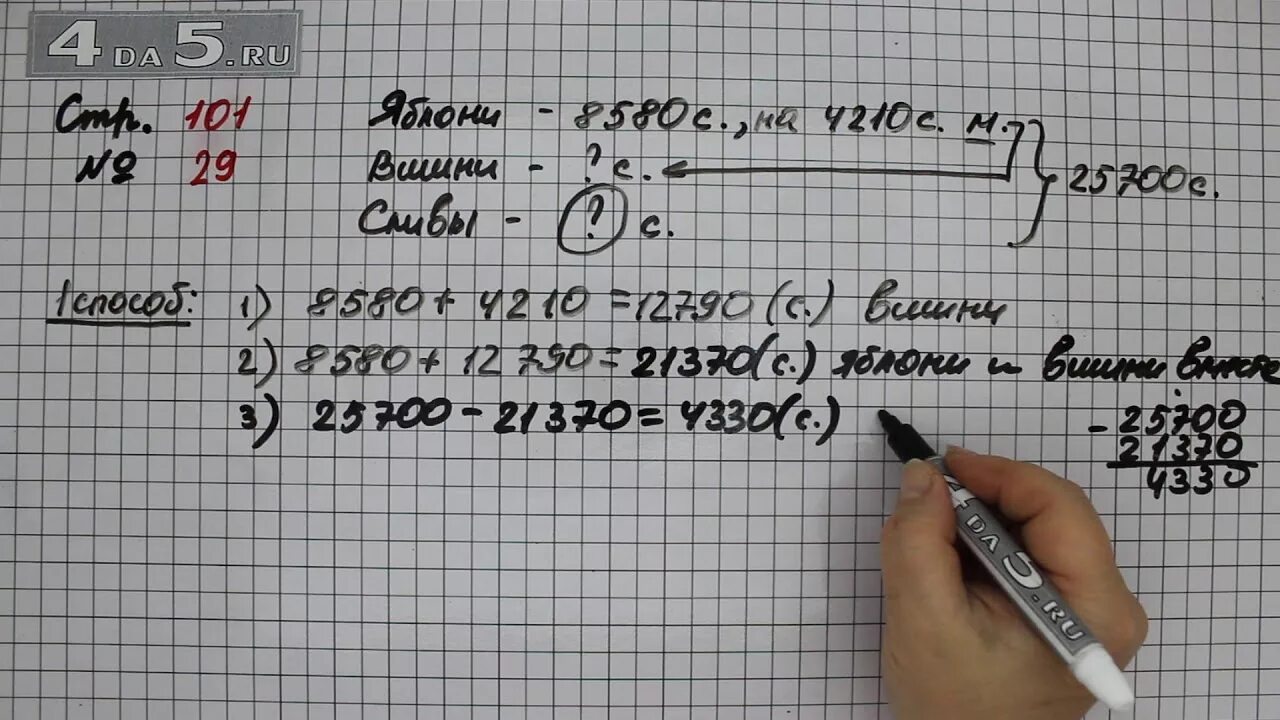 4DA5.RU
Стр. 101
№ 29
Яблони - 8580 с., на 4210 с. м.
Вишни - ? с.
Сливы - ? с.
25700 с.
1 способ:
1) 8580 + 4210 = 12790 (с.) вишни
2) 8580 + 12790 = 21370 (с.) яблони и вишни вместе
3) 25700 - 21370 = 4330 (с.)
- 25700
21370
4330
4DA5.RU